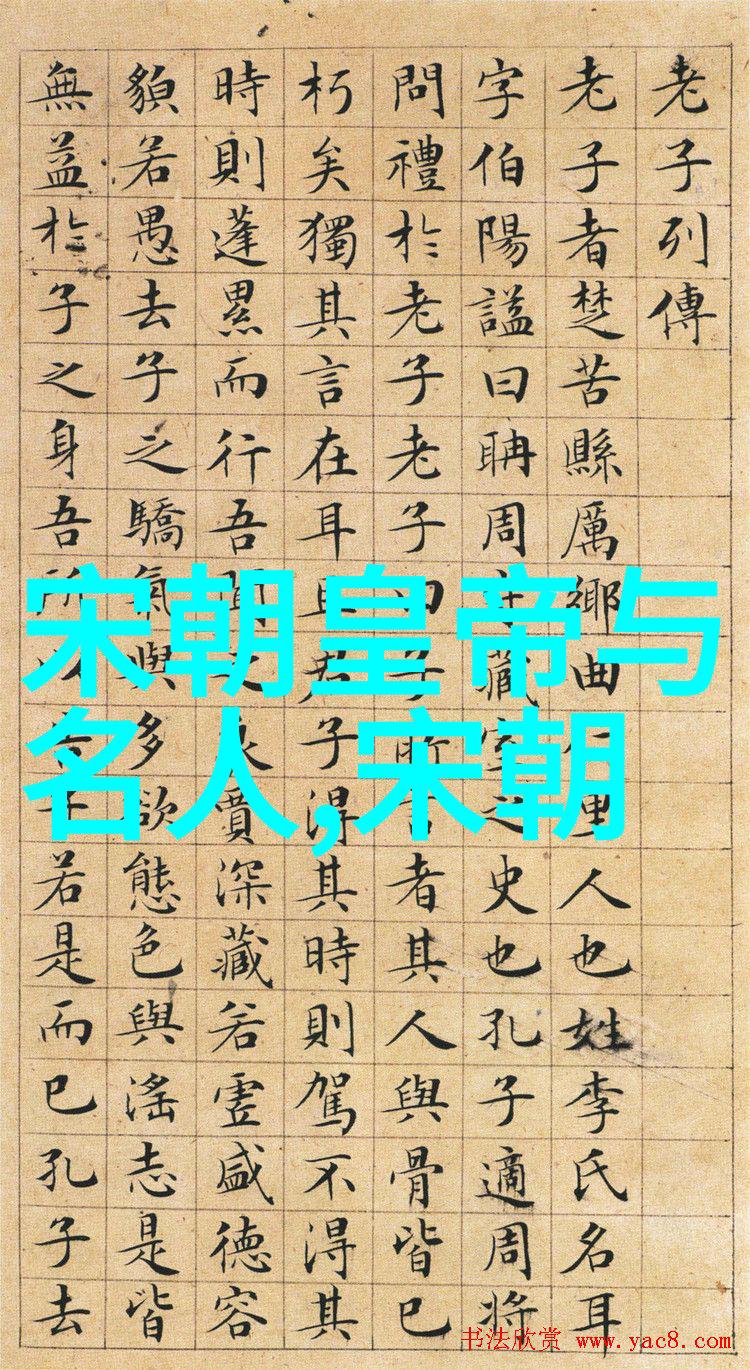 老子列傳
老子者楚苦縣厲鄉曲里人也姓李氏名耳
字伯陽謚曰聃周藏室之史也孔子適周將
問禮於老子老子曰子所言者其人與骨皆已
朽矣獨其言在耳且君子得其時則駕不得其
時則蓬累而行吾聞之良賈深藏若虛盛德容
貌若愚去子之驕氣與多欲態色與淫志是皆
無益於子之身吾所若是而已孔子去
宋朝皇帝与
名人,宋朝
书法欣赏 www.yac8.com